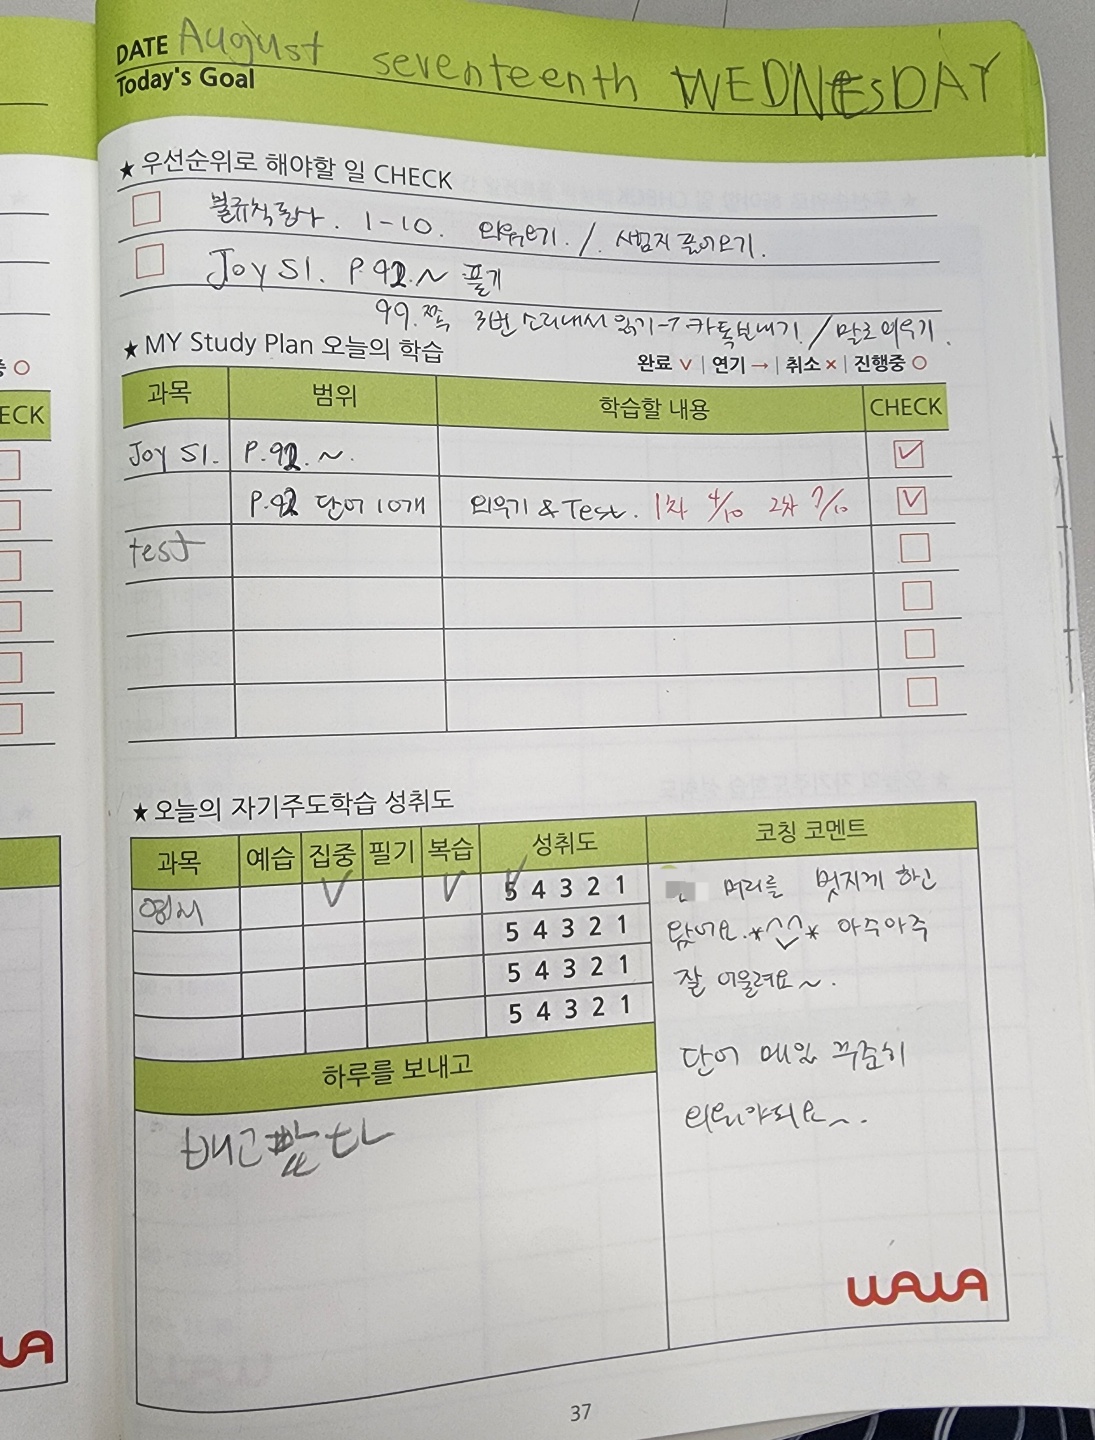 DATE August seventeenth WEDNESDAY
Today's Goal
★ 우선순위로 해야할 일 CHECK
불규칙동사. 1-10. 외워오기. / 시험지 풀어오기.
Joy S1. P.92.~ 풀기
99.쪽 3번 소리내서 읽기→카톡보내기 / 말로 외우기.
★ MY Study Plan 오늘의 학습
완료 ∨ | 연기 → | 취소 × | 진행중 ○
과목 범위 학습할 내용 CHECK
Joy S1. P.92. ~. ∨
P.92 단어 10개 외우기 & Test. 1차 4/10 2차 7/10 ∨
test
★ 오늘의 자기주도학습 성취도
과목 예습 집중 필기 복습 성취도 코칭 코멘트
∨ ∨ 5 4 3 2 1
5 4 3 2 1
5 4 3 2 1
5 4 3 2 1
머리를 멋지게 하고
왔어요.*^^* 아주아주
잘 어울려요~.
단어 매일 꾸준히
외워야되요~.
하루를 보내고
배고팠다
WAWA
37
ECK